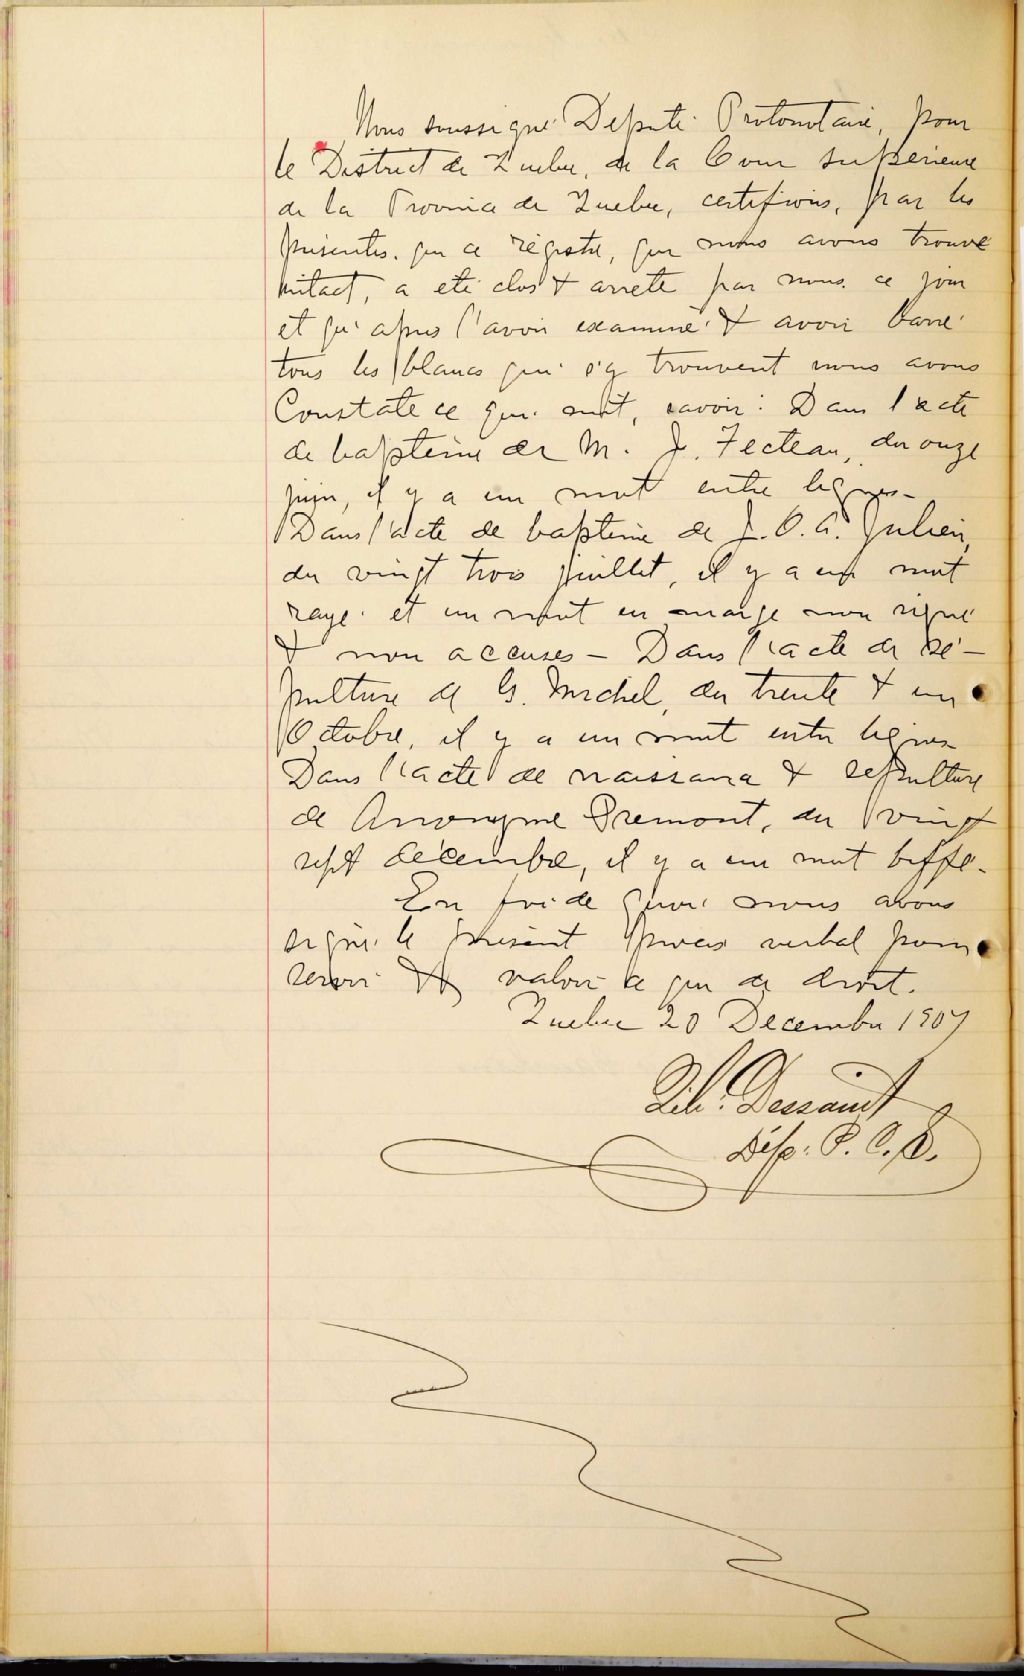 Nous soussigné Député Protonotaire, pour
le District de Québec, de la Cour supérieure
de la Province de Québec, certifions, par les
présentes, que ce régistre, que nous avons trouvé
intact, a été clos & arrêté par nous ce jour
et qu'après l'avoir examiné & avoir barré
tous les blancs qui s'y trouvent nous avons
Constaté ce qui suit, savoir: Dans l'acte
de baptême de M. J. Fecteau, du onze
juin, il y a un mot entre lignes—
Dans l'acte de baptême de J. O. A. Julien,
du vingt trois juillet, il y a un mot
rayé et un mot en marge non signé
& non accusés — Dans l'acte de sé-
pulture de G. Michel, du trente & un
Octobre, il y a un mot entre lignes
Dans l'acte de naissance & sépulture
de Anonyme Premont, du vingt
sept décembre, il y a un mot biffé.
En foi de quoi nous avons
signé le présent procès verbal pour
servir & valoir à qui de droit.
Québec 20 Décembre 1907
Dessaint
Dép. P. C. S.